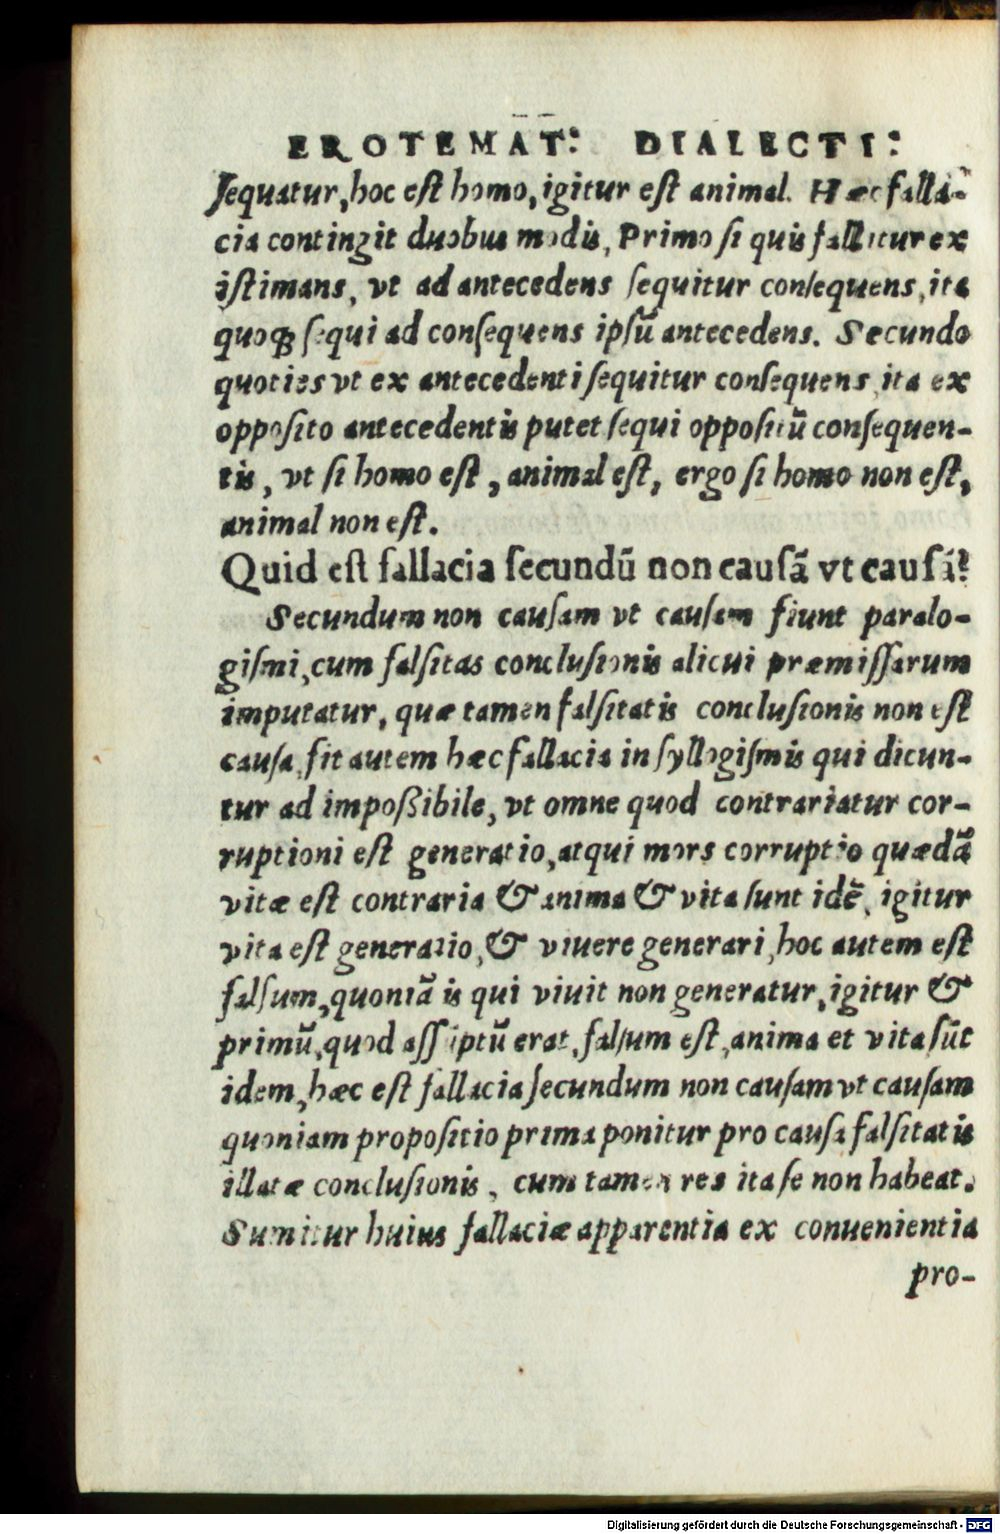 EROTEMAT: DIALECTI:
ſequatur, hoc eſt homo, igitur eſt animal. Hæc falla-
cia contingit duobus modis, Primo ſi quis fallitur ex
iſtimans, vt ad antecedens ſequitur conſequens, ita
quoqꝫ ſequi ad conſequens ipſũ antecedens. Secundo
quoties vt ex antecedenti ſequitur conſequens, ita ex
oppoſito antecedentis putet ſequi oppoſitũ conſequen-
tis, vt ſi homo eſt, animal eſt, ergo ſi homo non eſt,
animal non eſt.
Quid eſt fallacia ſecundũ non cauſã vt cauſã?
Secundum non cauſam vt cauſam fiunt paralo-
giſmi, cum falſitas concluſionis alicui præmiſſarum
imputatur, quæ tamen falſitatis concluſionis non eſt
cauſa, fit autem hæc fallacia in ſyllogiſmis qui dicun-
tur ad impoßibile, vt omne quod contrariatur cor-
ruptioni eſt generatio, atqui mors corruptio quædã
vitæ eſt contraria & anima & vita ſunt idẽ, igitur
vita eſt generatio, & viuere generari, hoc autem eſt
falſum, quoniã is qui viuit non generatur, igitur &
primũ, quod aſſũptũ erat, falſum eſt, anima et vita ſũt
idem, hæc eſt fallacia ſecundum non cauſam vt cauſam
quoniam propoſitio prima ponitur pro cauſa falſitatis
illatæ concluſionis, cum tamen res ita ſe non habeat.
Sumitur huius fallaciæ apparentia ex conuenientia
pro-
Digitalisierung gefördert durch die Deutsche Forschungsgemeinschaft - DFG